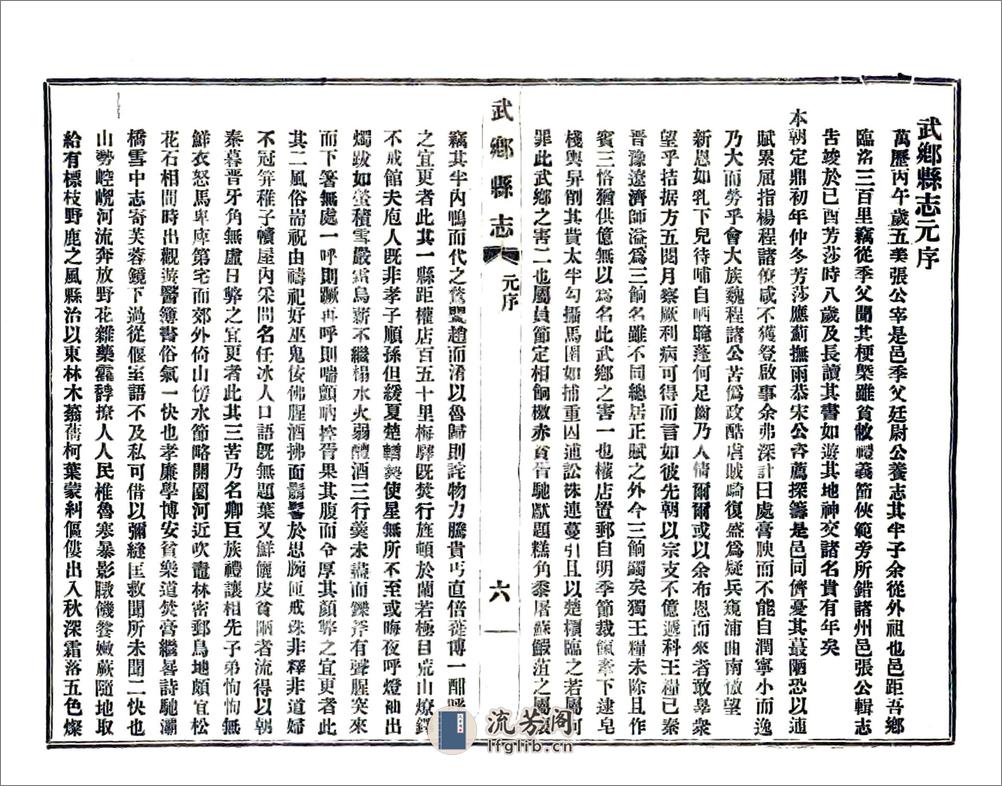 武鄉縣志元序
萬歷丙午歲五美張公宰是邑季父廷尉公養志其半子余從外祖也邑距吾鄉
臨洛三百里竊從季父聞其梗槩雖貧敝禮義節俠範旁所錯諸州邑張公輯志
告竣於己酉芳莎時八歲及長讀其書如遊其地神交諸名貴有年矣
本朝定鼎初年仲冬芳莎應薊撫雨恭宋公咨薦探籌是邑同儕憂其最陋恐以逋
賦累屈指楊程諸僚咸不獲登啟事余弗深計日處膏腴而不能自潤寧小而逸
乃大而勞乎會大族魏程諸公苦偽政酷虐賊騎復盛為疑兵窺浦曲南傲望
新恩如乳下兒待哺自哂腌蓬何足齒乃人情爾爾或以余布恩而來者敢舉衆
望乎拮据方五閱月察厥利病可得而言如彼先朝以宗支不億遞科王糧已泰
晉豫遼濟師溢為三餉名雖不同總居正賦之外今三餉蠲矣獨王糧未除且作
賓三恪猶供億無以為名此武鄉之害一也權店置郵自明季節裁領牽下逮皂
棧輿舁削其貴太半勾攝馬圉如捕重囚逋訟誅連蔓引且以楚橫臨之若屬何
罪此武鄉之害二也屬員節定相餉檄赤貧皆馳獸題糕角黍屠蘇鰕菹之屬
武鄉縣志
元序
六
竊其半內鴨而代之驁盟趙而淆以魯歸則詫物力騰貴丐直倍蓰博一酣呼
之宜更者此其一縣距權店百五十里梅驛既焚行旌頓於蘭若極目荒山燎鐸
不戒館夫庖人既非孝子順孫但緩夏楚輶軺使星無所不至或晦夜呼燈袖出
燭跋如螢積雪嚴霜烏薪不繼榻水火弱醴酒三行羹未蓋而鑠斧有聲腥突來
而下箸無處一呼則蹶再呼則喘顫吶捽胥果其腹而令厚其顏弊之宜更者此
其二風俗耑祝由禱祀好巫鬼侫佛腥酒拂面鬍髻於思腕匝戒珠非釋非道婦
不冠笄稚子幘屋內宋問名任冰人口語既無題葉又鮮儷皮貧陋者流得以朝
秦暮晉牙角無虛日弊之宜更者此其三苦乃名卿巨族禮讓相先子弟恂恂無
鮮衣怒馬卑庳第宅而郊外倚山傍水節略開園河近吹鼃林密郵鳥地頗宜松
花石相間時出觀遊醫簿書俗氣一快也孝廉學博安貧樂道焚膏繼晷詩馳灞
橋雪中志寄芙蓉鏡下過從偃室語不及私可借以彌縫匡救聞所未聞二快也
山勢崆峴河流奔放野花雜藥靄馞撩人人民椎魯寒暴影臌饑餐嫩蕨隨地取
給有標枝野鹿之風縣治以東林木蓊薈柯葉蒙糾傴僂出入秋深霜落五色燦
流芳閣
lfglib.cn